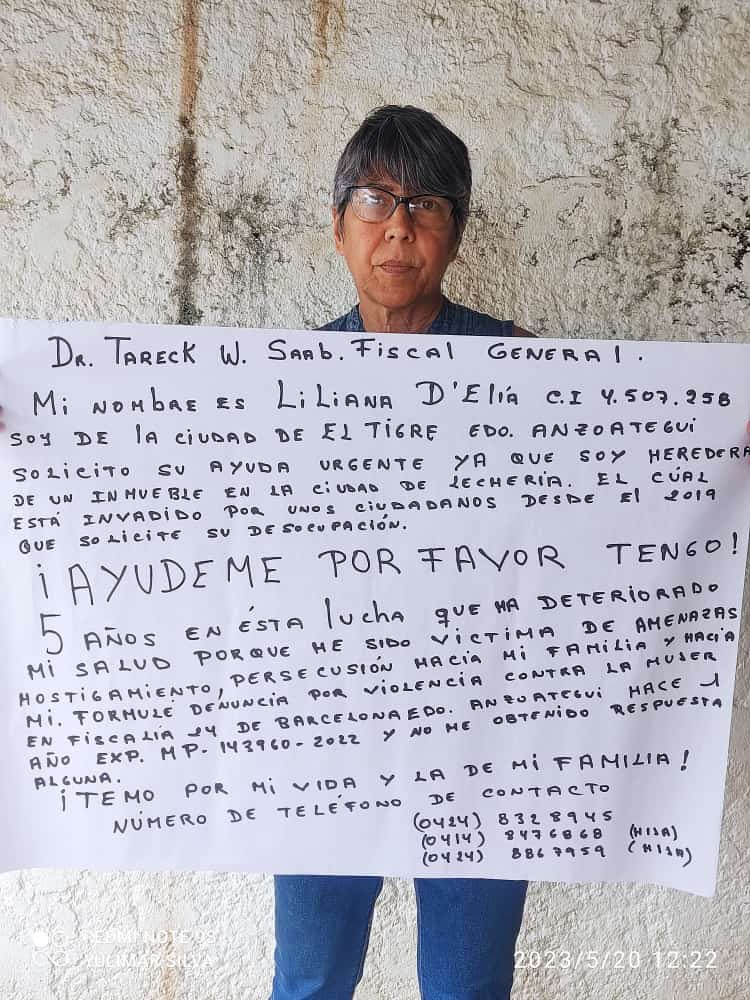 DR. TARECK W. SAAB. FISCAL GENERAL.
MI NOMBRE ES LILIANA D'ELÍA C.I 4.507.258
SOY DE LA CIUDAD DE EL TIGRE EDO. ANZOATEGUI
SOLICITO SU AYUDA URGENTE YA QUE SOY HEREDERA
DE UN INMUEBLE EN LA CIUDAD DE LECHERÍA. EL CÚAL
ESTÁ INVADIDO POR UNOS CIUDADANOS DESDE EL 2019
QUE SOLICITE SU DESOCUPACIÓN.
¡AYUDEME POR FAVOR TENGO!
5 AÑOS EN ÉSTA LUCHA QUE HA DETERIORADO
MI SALUD PORQUE HE SIDO VÍCTIMA DE AMENAZAS
HOSTIGAMIENTO, PERSECUSIÓN HACÍA MI FAMILIA Y HACÍA
MI. FORMULÉ DENUNCIA POR VIOLENCIA CONTRA LA MUJER
EN FISCALÍA 24 DE BARCELONA EDO. ANZOATEGUI HACE 1
AÑO EXP. MP-143960-2022 Y NO HE OBTENIDO RESPUESTA
ALGUNA.
¡TEMO POR MI VIDA Y LA DE MI FAMILIA!
NÚMERO DE TELÉFONO DE CONTACTO
(0424) 8328945
(0414) 8476868 (HIJA)
(0424) 8867959 (HIJA)
REDMI NOTE 9S
YULIMAR SILVA
2023/5/20 12:22